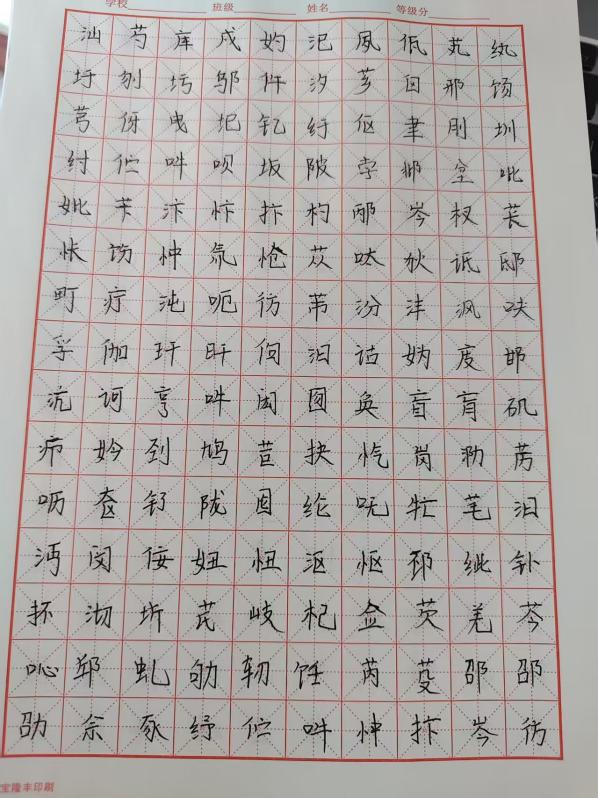 学校 班级 姓名 等级分
汕 芍 庠 戍 妁 汜 夙 佤 芄 纨
圩 刎 圬 邬 仵 汐 芗 囙 邢 饧
芎 伢 曳 圯 钇 纡 伛 聿 刖 圳
纣 伫 吽 呗 坂 陂 孛 邶 坌 吡
妣 芐 汴 忭 抃 杓 邴 岑 杈 苌
怅 饬 忡 氘 怆 苁 呔 狄 诋 邸
町 疔 沌 呃 彷 芾 汾 沣 沨 呋
孚 伽 玕 旰 佝 汩 诂 妫 庋 邯
沆 诃 亨 吽 囡 囫 奂 肓 肓 矶
疖 妗 刭 鸠 苣 抉 忾 岗 劢 苈
呖 奁 钌 陇 囵 纶 呒 牤 芼 汨
沔 闵 佞 妞 忸 沤 怄 邳 纰 钋
抔 沏 圻 芪 岐 杞 佥 芡 羌 芩
吣 邱 虬 劬 轫 饪 芮 芟 邵 邵
劭 佘 豕 纾 伫 吽 忡 抃 岑 彷
宝隆丰印刷